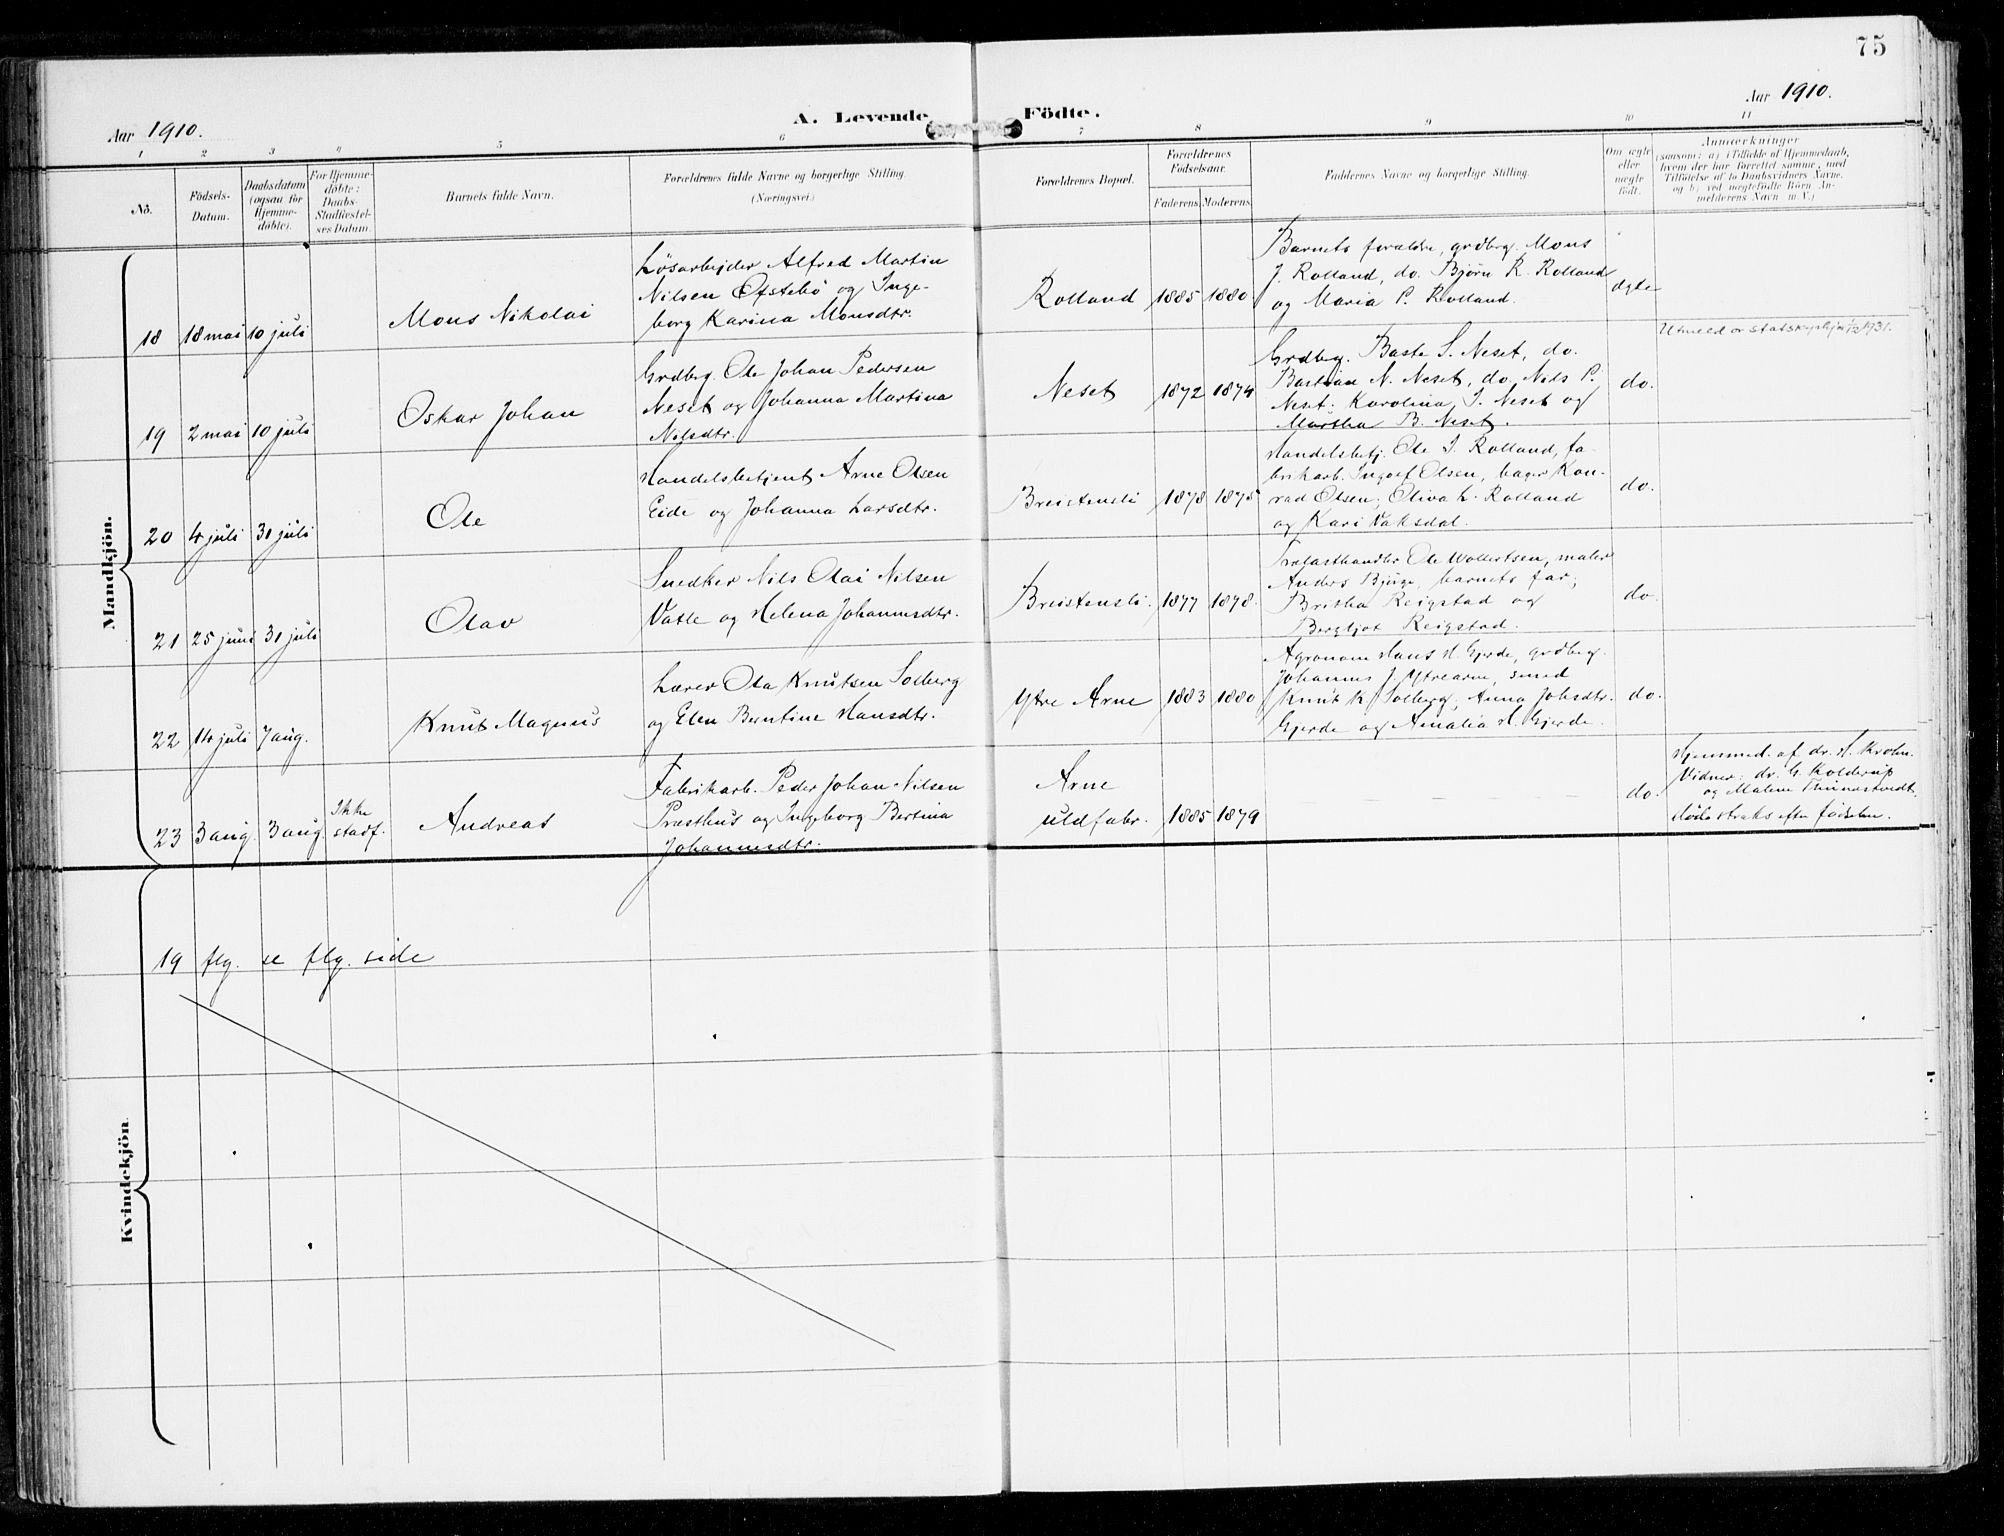 75
Aar 1910.
A. Levende Födte.
Aar 1910.
1 2 3 4 5 6 7 8 9 10 11
No.
Födsels-
Datum.
Daabsdatum
(ogsaa for
Hjemme-
döbte).
For Hjemme-
döbte:
Daabs-
Stadfæstel-
ses Datum.
Barnets fulde Navn.
Forældrenes fulde Navne og borgerlige Stilling.
(Næringsvei.)
Forældrenes Bopæl.
Forældrenes
Födselsaar.
Faderens. Moderens.
Faddernes Navne og borgerlige Stilling.
Om ægte
eller
uægte
født.
Anmærkninger
(saasom: a) i Tilfælde af Hjemmedaab,
hvem der har forrettet samme, med
Tilföielse af to Daabsvidners Navne.
og b) ved uegtefödte Börn An-
melderens Navn m.V.)
Mandkjön.
18 18 mai 10 juli
Mons Nikolai
Løsarbejder Alfred Martin
Nilsen Øfstebø og Inge-
borg Karina Monsdtr.
Rolland 1885 1880
Barnets forældre, grdbrg. Mons
J. Rolland, do. Bjørn R. Rolland
og Maria P. Rolland.
ægte
19 2 mai 10 juli
Oskar Johan
Grdbrg. Ole Johan Pedersen
Neset og Johanna Martina
Nilsdtr.
Neset 1872 1874
Grdbrg. Baste S. Neset, do.
Bastian N. Neset, do. Nils P.
Neset. Karolina J. Neset og
Martha B. Neset.
do.
Utmeld av statskyrkja 1/12 1931.
20 4 juli 31 juli
Ole
Handelsbetjent Arne Olsen
Eide og Johanna Larsdtr.
Breistensli 1878 1875
Handelsbetj. Ole I. Rolland, fa-
brikarb. Ingolf Olsen, bager Kon-
rad Olsen, Oliva L. Rolland
og Kari Vaksdal.
do.
21 25 juni 31 juli
Olav
Snedker Nils Olai Nilsen
Vatle og Helena Johannesdtr.
Breistensli. 1877 1878.
Trælasthandler Ole Wollertsen, maler
Anders Bjørge, barnets far,
Britha Reigstad og
Bergljot Reigstad.
do.
22 14 juli 7 aug.
Knut Magnus
Lærer Ola Knutsen Solberg
og Elen Berntine Hansdtr.
Ytre Arne 1883 1880
Agronom Hans H. Gjerde, grdbrg.
Johannes J. Ytrearne, smed
Knut K. Solberg, Anna Johsdtr.
Gjerde og Amalia H. Gjerde.
do.
23 3 aug. 3 aug. Ikke
stadf.
Andreas
Fabrikarb. Peder Johan Nilsen
Præsthus og Ingeborg Bertina
Johannesdtr.
Arne
uldfabr. 1885 1879
do.
Hjemmed. af dr. H. Krohn.
Vidner: dr. G. Kolderup
og Malene
døde straks efter fødselen.
Kvindekjön.
19 flg. se flg. side